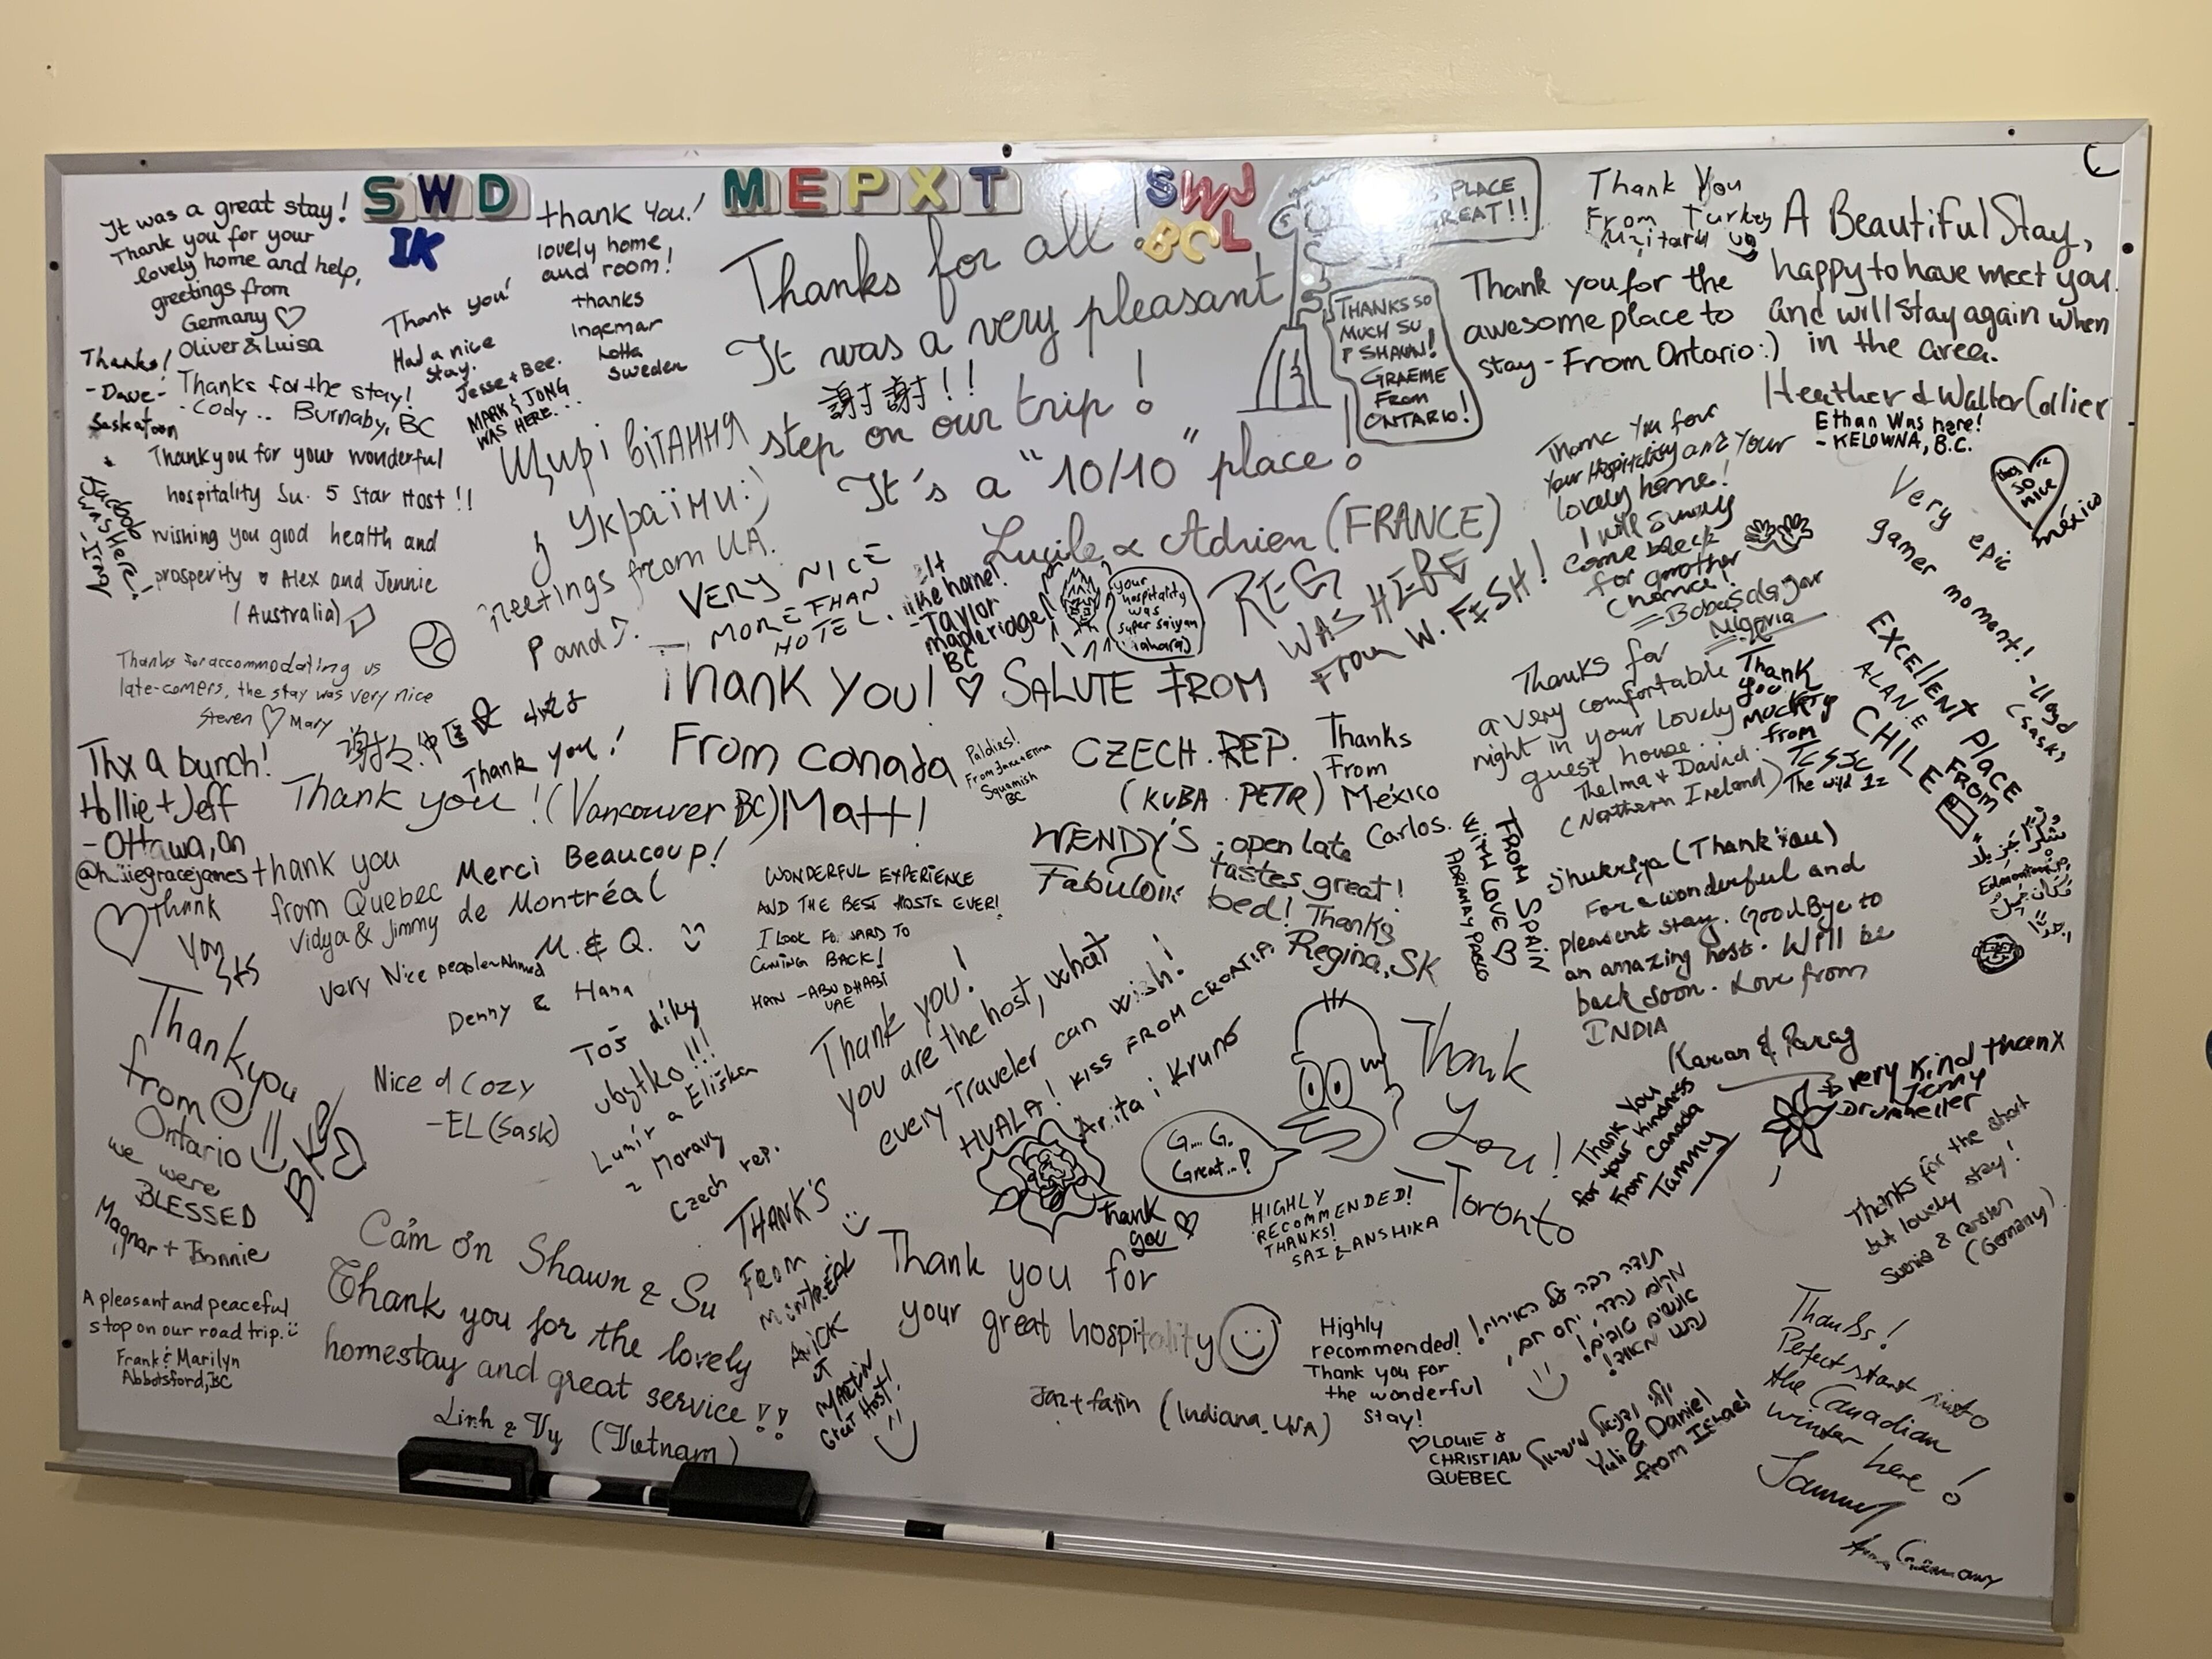 SWD
IK
MEPXT
SWJ
BCL
It was a great stay!
Thank you for your
lovely home and help,
greetings from
Germany ♡
Oliver & Luisa
thank you!
lovely home
and room!
thanks
Ingemar
Lotta
Sweden
Thank you!
Had a nice
stay.
Jesse + Bee.
MARK & JONG
WAS HERE...
Thanks!
-Dave-
Saskatoon
Thanks for the stay!
-Cody.. Burnaby, BC
Thank you for your wonderful
hospitality Su. 5 Star Host!!
wishing you good health and
prosperity ♥ Alex and Jennie
(Australia)
was Here!
Thanks for all!
It was a very pleasant
step on our trip!
It's a "10/10" place!
Lucile & Adrien (FRANCE)
謝謝!!
Щирі вітання
з України:)
Greetings from UA.
PLACE
GREAT!!
THANKS SO
MUCH SU
& SHAWN!
GRAEME
From
ONTARIO!
Thank You
From Turkey
Thank you for the
awesome place to
stay - From Ontario:)
A Beautiful Stay,
happy to have meet you
and will stay again when
in the area.
Heather & Walter Collier
Ethan Was here!
- KELOWNA, B.C.
so
nice
méxico
Very epic
gamer moment!
-Lloyd
(Sask)
Thank You for
Your Hospitality and Your
lovely home!
I will surely
come back
for another
chance!
Nigeria
VERY NICE
MORE THAN
HOTEL.
like home!
-Taylor
BC
your
hospitality
was
super saiyan
REG
WAS HERE
From W. FISH!
Thanks for accommodating us
late-comers, the stay was very nice
Steven ♡ Mary
Thank you!
Thank you!
From Canada
Matt!
♡ SALUTE FROM
CZECH. REP.
(KUBA. PETR)
Paldies!
Squamish
BC
Thanks
From
México
Carlos.
Thanks for
a very comfortable
night in your lovely
guest house.
Thelma + David
(Northern Ireland)
Thank
you
from
EXCEllENT PlACE
FROM
CHILE
Thx a bunch!
Hollie + Jeff
- Ottawa, On
Thank you! (Vancouver BC)
thank you
from Quebec
Vidya & Jimmy
Merci Beaucoup!
de Montréal
M. & Q.
♡ thank
you
Very Nice people-Ahmed
Denny & Hana
WONDERFUL EXPERIENCE
AND THE BEST HOSTS EVER!
I LOOK FORWARD TO
COMING BACK!
HAN - ABU DHABI
UAE
WENDY'S - open late
tastes great!
Fabulous bed! Thanks
Regina, SK
FROM SPAIN
WITH LOVE ♡
Shukriya (Thank You)
For a wonderful and
pleasent stay. GoodBye to
an amazing host. Will be
back soon. Love from
INDIA
Karan & Parag
شكرا جزيلا
Edmonton
مكان جميل
Thank you
from
Ontario
we were
BLESSED
Magnar + Bonnie
Nice & Cozy
-EL (Sask)
Toš díky
ubytko!!!
Lumír a Eliška
z Moravy
Czech rep.
Thank you!
you are the host, what
every Traveler can wish!
HVALA! KISS FROM CROATIA
Arita i Kruno
Thank
you ♡
G... G.
Great...!
Thank
You!
Toronto
Thank You
for your kindness
From Canada
Tammy
very kind thanx
Jenny
Drumheller
Thanks for the short
but lovely stay!
(Germany)
HIGHLY
RECOMMENDED!
THANKS!
SAI & ANSHIKA
A pleasant and peaceful
stop on our road trip.
Frank & Marilyn
Abbotsford, BC
Cảm ơn Shawn & Su
Thank you for the lovely
homestay and great service!!
Linh & Vy (Vietnam)
THANK'S
From
Montréal
ANICK
ET
MARTIN
Great Host!
Thank you for
your great hospitality
(Indiana, USA)
Highly
recommended!
Thank you for
the wonderful
stay!
♡ LOUIE &
CHRISTIAN
QUEBEC
תודה רבה על האירוח!
מקום נהדר, יחס חם,
אנשים טובים!
נהננו מאוד!
יולי ודניאל מישראל
Yuli & Daniel
from Israel
Thanks!
Perfect start into
the Canadian
winter here!
Germany